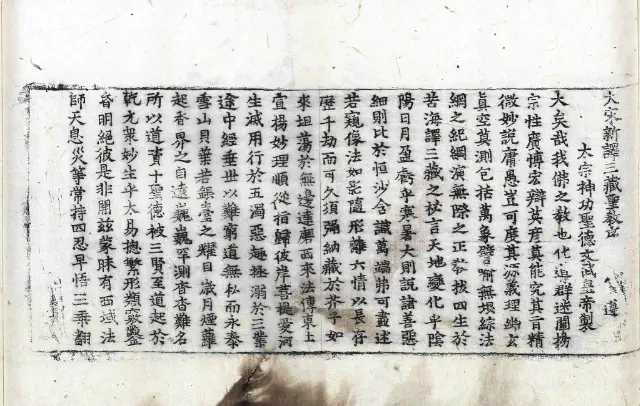 大宋新譯三藏聖教序 遵
太宗神功聖德文武皇帝製
大矣哉我佛之教也化導群迷闡揚
宗性廣博宏辯英彥莫能究其旨精
微妙說庸愚豈可度其源義理幽玄
真空莫測包括萬象譬喻無垠綜法
網之紀綱演無際之正教拔四生於
苦海譯三藏之秘言天地變化乎陰
陽日月盈虧乎寒暑大則說諸善惡
細則比於恒沙含識萬端弗可盡述
若窺像法如影隨形離六情以長存
歷千劫而可久須彌納藏於芥子如
來坦蕩於無邊達磨西來法傳東土
宣揚妙理順從指歸彼岸菩提愛河
生滅用行於五濁惡趣拯溺於三業
途中經垂世以難窮道無私而永泰
雪山貝葉若銀臺之耀目歲月煙蘿
起香界之自遠巍巍罕測杳杳難名
所以道資十聖德被三賢至道起於
乾元衆妙生乎太易摠繁形類竅鑿
昏明絕彼是非開茲蒙昧有西域法
師天息災等常持四忍早悟三乘翻